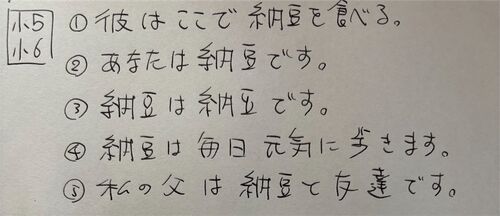 小5
小6
① 彼はここで納豆を食べる。
② あなたは納豆です。
③ 納豆は納豆です。
④ 納豆は毎日元気に歩きます。
⑤ 私の父は納豆と友達です。